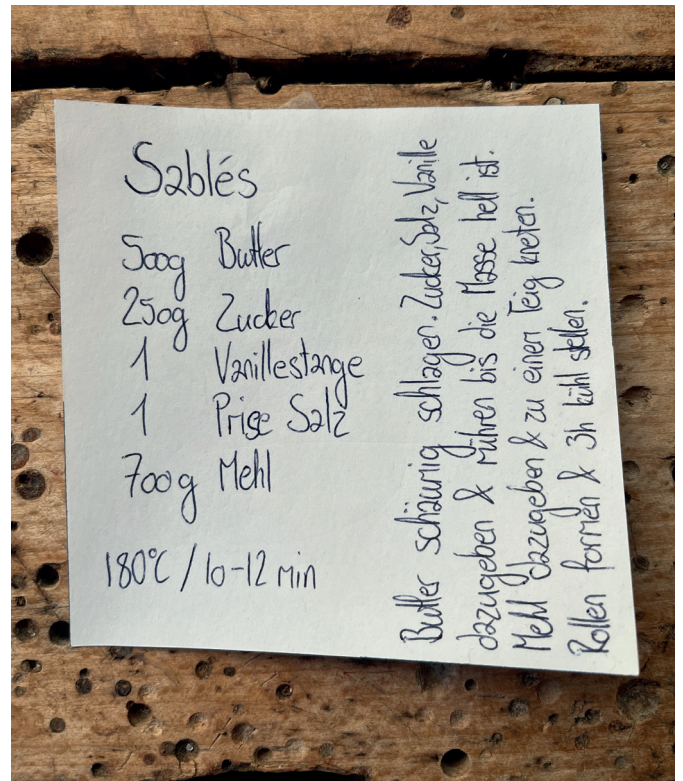 Sablés
500g Butter
250g Zucker
1 Vanillestange
1 Prise Salz
700g Mehl
180°C / 10-12 min
Butter schäumig schlagen. Zucker, Salz, Vanille
dazugeben & rühren bis die Masse hell ist.
Mehl dazugeben & zu einem Teig kneten.
Rollen formen & 3h kühl stellen.